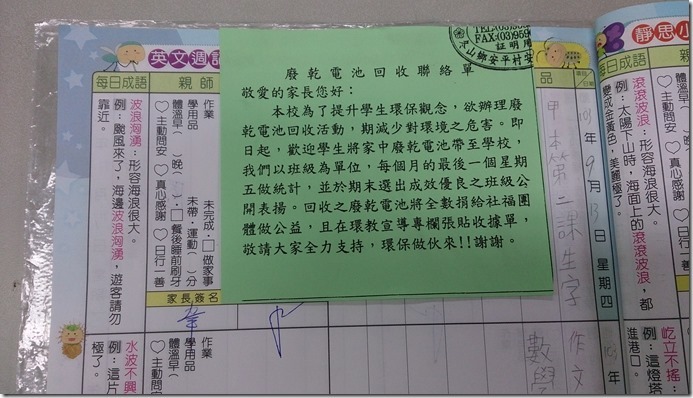 TEL:(03)
FAX:(03)
證明用
龜山鄉安平村安
廢乾電池回收聯絡單
敬愛的家長您好：
本校為了提升學生環保觀念，欲辦理廢
乾電池回收活動，期減少對環境之危害。即
日起，歡迎學生將家中廢乾電池帶至學校，
我們以班級為單位，每個月的最後一個星期
五做統計，並於期末選出成效優良之班級公
開表揚。回收之廢乾電池將全數捐給社福團
體做公益，且在環教宣導專欄張貼收據單，
敬請大家全力支持，環保做伙來!!謝謝。
靜思小
滾滾波浪：形容海浪很大。
例：太陽下山時，海面上的滾滾波浪，都
變成金黃色，美麗極了。
屹立不搖：
例：這燈塔
進港口。
年9月13日 星期四
甲本第二課生字
作文
數學
年
品
英文週記
每日成語
親師
波浪洶湧：形容海浪很大。
例：颱風來了，海邊波浪洶湧，遊客請勿
靠近。
作業 未完成：□做家事
學用品 未帶：運動（ ）分
體溫早（ ）晚（ ）：□餐後睡前刷牙
♡主動問安 ♡真心感謝 ♡日行一善
家長簽名
水波不興
例：這片
極了。
作業
學用品
體溫早（
♡主動問安